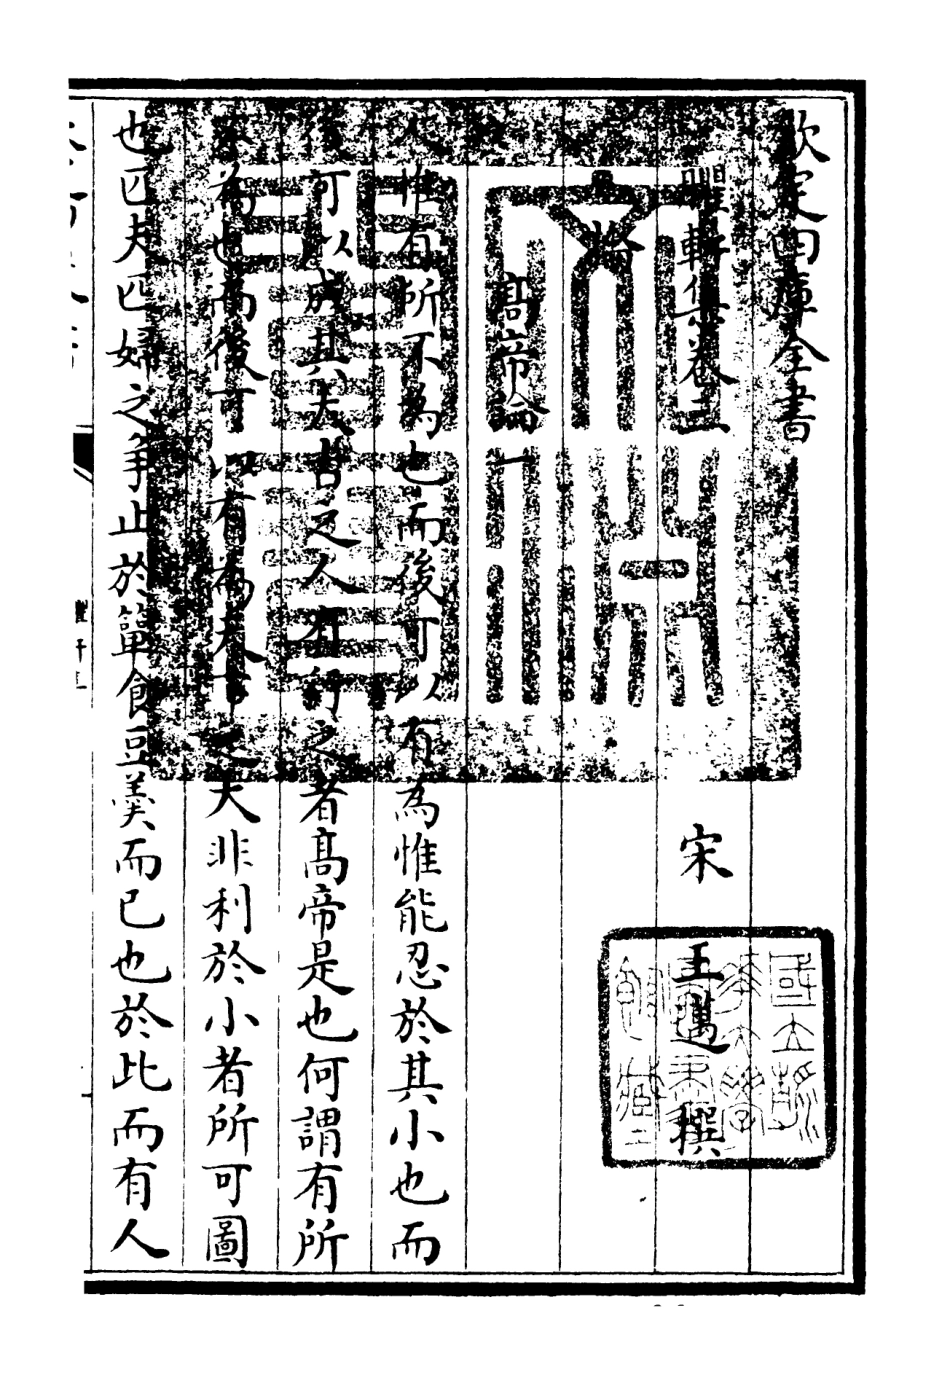 欽定四庫全書
臞軒集卷三 宋 王邁 撰
高帝論一
人惟有所不為也而後可以有為惟能忍於其小也而
後可以成其大古之人有行之者高帝是也何謂有所
不為也而後可以有為天下之大非利於小者所可圖
也匹夫匹婦之爭止於簞食豆羹而已也於此而有人